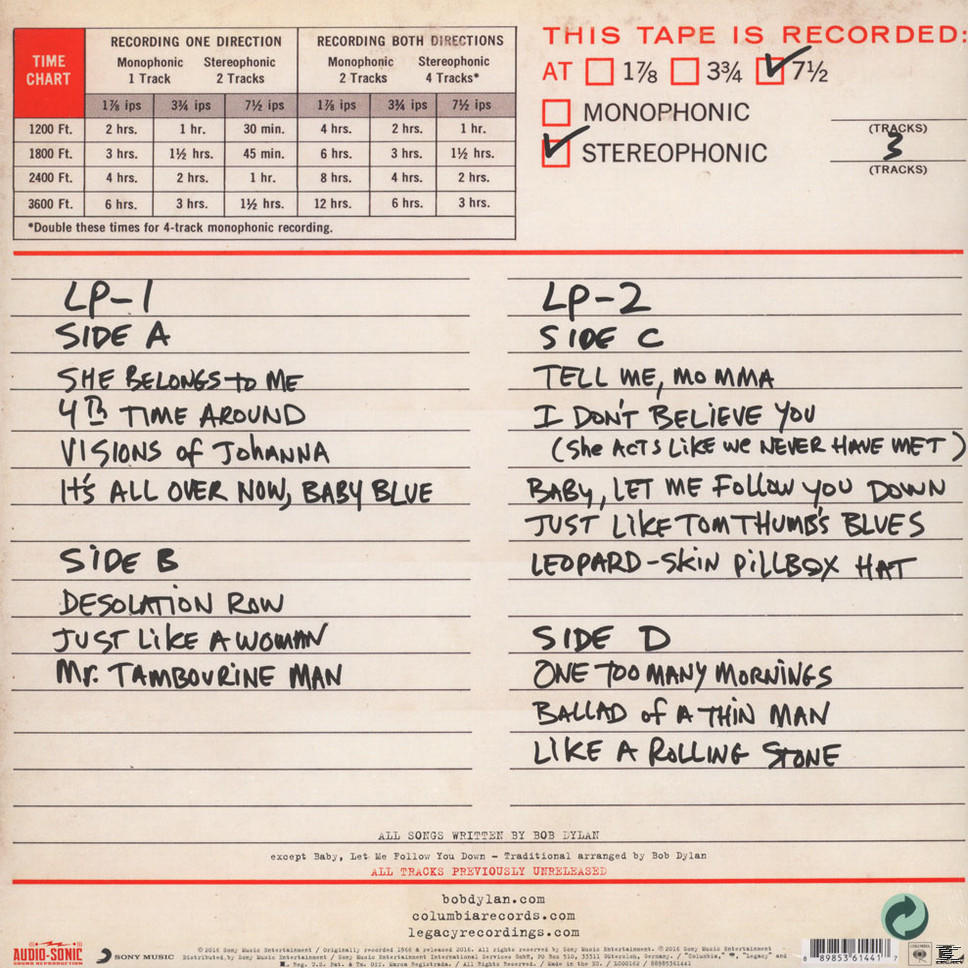 TIME CHART
RECORDING ONE DIRECTION
RECORDING BOTH DIRECTIONS
Monophonic 1 Track
Stereophonic 2 Tracks
Monophonic 2 Tracks
Stereophonic 4 Tracks*
1⅞ ips 3¾ ips 7½ ips 1⅞ ips 3¾ ips 7½ ips
1200 Ft. 2 hrs. 1 hr. 30 min. 4 hrs. 2 hrs. 1 hr.
1800 Ft. 3 hrs. 1½ hrs. 45 min. 6 hrs. 3 hrs. 1½ hrs.
2400 Ft. 4 hrs. 2 hrs. 1 hr. 8 hrs. 4 hrs. 2 hrs.
3600 Ft. 6 hrs. 3 hrs. 1½ hrs. 12 hrs. 6 hrs. 3 hrs.
*Double these times for 4-track monophonic recording.
THIS TAPE IS RECORDED:
AT 1⅞ 3¾ 7½
MONOPHONIC
(TRACKS)
STEREOPHONIC 3
(TRACKS)
LP-1
SIDE A
SHE BELONGS to ME
4TH TIME AROUND
VISIONS of JOHANNA
It's ALL OVER NOW, BABY BLUE
SIDE B
DESOLATION ROW
JUST LIKE A WOMAN
Mr. TAMBOURINE MAN
LP-2
SIDE C
TELL ME, MOMMA
I DON'T BELIEVE YOU
(She ACTS LIKE WE NEVER HAVE MET)
BABY, LET ME FOLLOW YOU DOWN
JUST LIKE TOM THUMB'S BLUES
LEOPARD-SKIN PILLBOX HAT
SIDE D
ONE TOO MANY MORNINGS
BALLAD of A THIN MAN
LIKE A ROLLING STONE
ALL SONGS WRITTEN BY BOB DYLAN
except Baby, Let Me Follow You Down - Traditional arranged by Bob Dylan
ALL TRACKS PREVIOUSLY UNRELEASED
bobdylan.com
columbiarecords.com
legacyrecordings.com
AUDIO-SONIC
SOUND REPRODUCTION
SONY MUSIC
℗ 2016 Sony Music Entertainment / Originally recorded 1966 & released 2016. All rights reserved by Sony Music Entertainment. © 2016 Sony Music Entertainment /
Distributed by Sony Music Entertainment / Sony Music Entertainment International Services GmbH, PO Box 510, 33311 Gütersloh, Germany. / "Columbia," "Legacy" and
Reg. U.S. Pat. & Tm. Off. Marca Registrada. / All Rights Reserved. / Made in the EU. / LC00162 / 88985361441
8 89853 61441 7
COLUMBIA